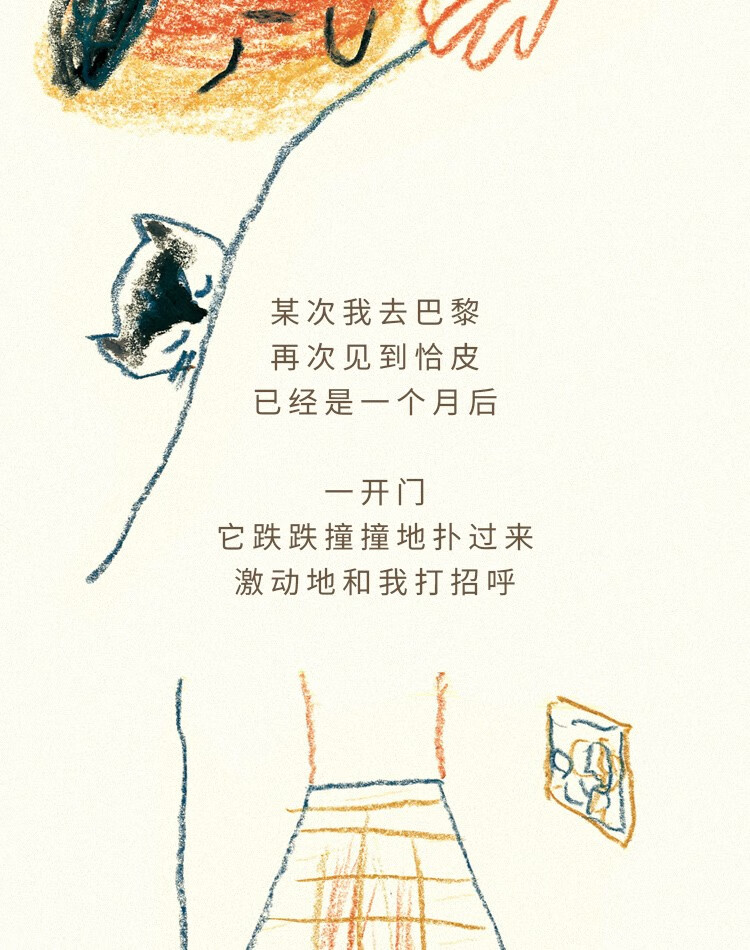 某次我去巴黎
再次见到恰皮
已经是一个月后
一开门
它跌跌撞撞地扑过来
激动地和我打招呼